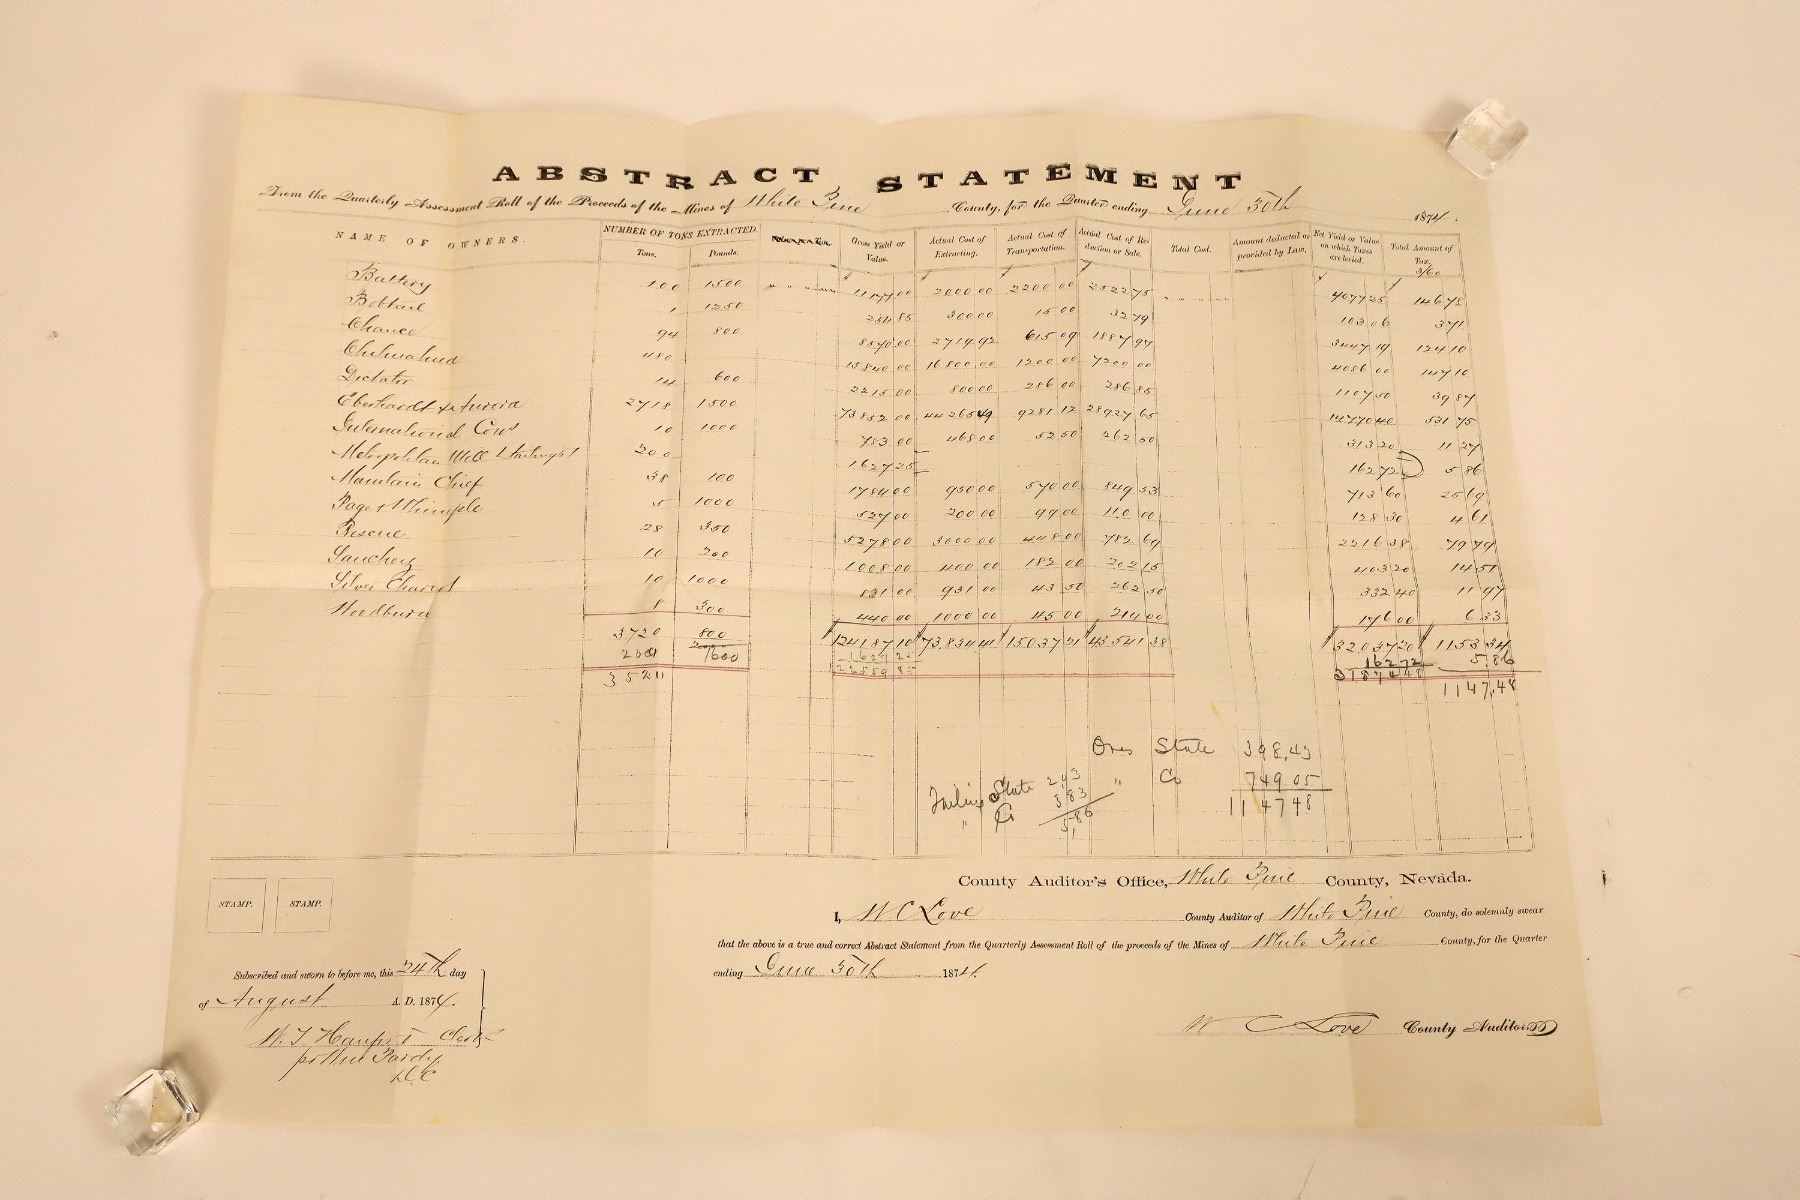 ABSTRACT STATEMENT
From the Quarterly Assessment Roll of the Proceeds of the Mines of White Pine County, for the Quarter ending June 30th 1874.
NAME OF OWNERS. NUMBER OF TONS EXTRACTED. Tons. Pounds. Gross Yield or Value. Actual Cost of Extracting. Actual Cost of Transportation. Actual Cost of Reduction or Sale. Total Cost. Amount deducted as provided by Law. Net Yield or Value on which Taxes are levied. Total Amount of Tax. 3/60
Battery 100 1500 2000 00 2200 00 2522 75 4077 25 146 78
Bobtail 1 1250 300 00 15 00 32 79 103 06 3 71
Chance 94 800 2719 92 615 09 1887 97 3447 19 124 10
Chihuahua 480 15840 00 16800 00 1200 00 7200 00 4086 00 147 10
Dictator 14 600 2215 00 800 00 286 00 286 85 1107 50 39 87
Eberhardt & Aurora 2718 1500 73852 00 44265 49 9281 12 28927 65 14770 40 531 75
International Cons 10 1000 783 00 468 00 52 50 262 50 313 20 11 27
Metropolitan Mill 200 1627 25 1627 2 5 86
Mountain Chief 38 100 1784 00 950 00 570 00 849 53 713 60 25 69
Page & Whimple 5 1000 527 00 200 00 99 00 110 00 128 30 4 61
Rescue 28 350 5278 00 3000 00 448 00 782 69 2216 38 79 79
Sanchez 10 200 1008 00 400 00 182 00 202 15 403 20 14 51
Silver Chariot 10 1000 831 00 931 00 43 50 262 50 332 40 11 97
Woodburn 8 300 440 00 1000 00 45 00 214 00 176 00 6 33
3720 800 124187 10 73,834 41 15037 21 43,541 38 32,037 20 1153 34
1600 1627 25 1627 2 5,86
3520 122559 85 31874 48 1147,48
Ores State 398,43
" Co 749 05
1147 48
State 2 03
" Co 3,83
5,86
County Auditor's Office, White Pine County, Nevada.
I, W C Love County Auditor of White Pine County, do solemnly swear
that the above is a true and correct Abstract Statement from the Quarterly Assessment Roll of the proceeds of the Mines of White Pine County, for the Quarter
ending June 30th 1874.
W C Love County Auditor
STAMP. STAMP.
Subscribed and sworn to before me, this 24th day
of August A. D. 1874.
Clerk
D C